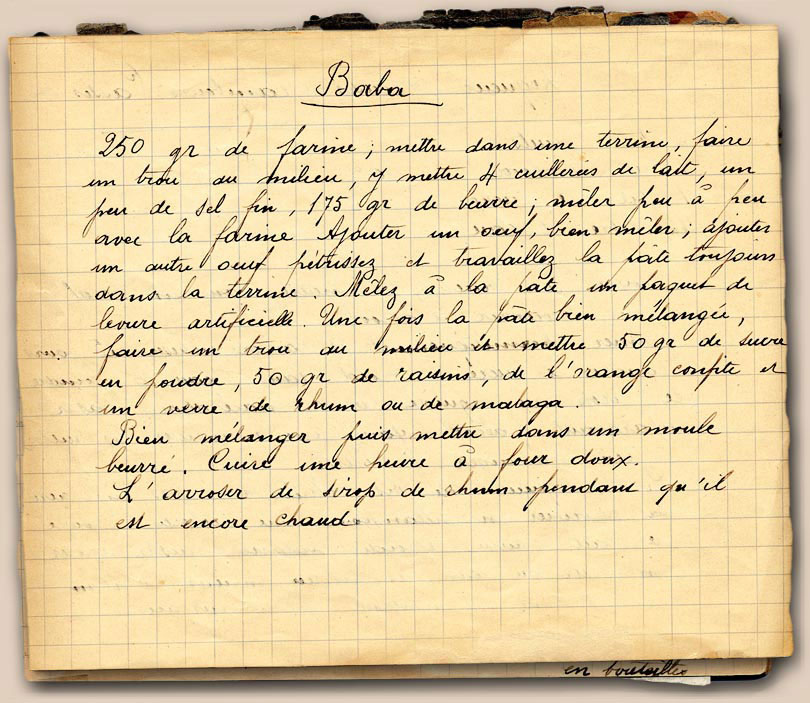 Baba
250 gr de farine ; mettre dans une terrine, faire
un trou au milieu, y mettre 4 cuillerées de lait, un
peu de sel fin, 175 gr de beurre ; mêler peu à peu
avec la farine Ajouter un oeuf, bien mêler ; ajouter
un autre oeuf pétrissez et travaillez la pâte toujours
dans la terrine. Mêlez à la pâte un paquet de
levure artificielle. Une fois la pâte bien mélangée,
faire un trou au milieu et mettre 50 gr de sucre
en poudre, 50 gr de raisins, de l'orange confite et
un verre de rhum ou de malaga.
Bien mélanger puis mettre dans un moule
beurré. Cuire une heure à four doux.
L'arroser de sirop de rhum pendant qu'il
est encore chaud
en bouteilles